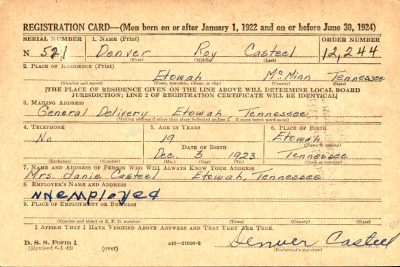 REGISTRATION CARD—(Men born on or after January 1, 1922 and on or before June 30, 1924)
SERIAL NUMBER 1. NAME (Print) ORDER NUMBER
N 521 Denver Roy Casteel 12,244
(First) (Middle) (Last)
2. PLACE OF RESIDENCE (Print)
Etowah McMinn Tennessee
(Number and street) (Town, township, village, or city) (County) (State)
[THE PLACE OF RESIDENCE GIVEN ON THE LINE ABOVE WILL DETERMINE LOCAL BOARD
JURISDICTION; LINE 2 OF REGISTRATION CERTIFICATE WILL BE IDENTICAL]
3. MAILING ADDRESS
General Delivery Etowah, Tennessee
[Mailing address if other than place indicated on line 2. If same insert word same]
4. TELEPHONE 5. AGE IN YEARS 6. PLACE OF BIRTH
No 19 Etowah
DATE OF BIRTH (Town or county)
Dec. 3 1923 Tennessee
(Exchange) (Number) (Mo.) (Day) (Yr.) (State or country)
7. NAME AND ADDRESS OF PERSON WHO WILL ALWAYS KNOW YOUR ADDRESS
Mrs. Janie Casteel Etowah, Tennessee
8. EMPLOYER'S NAME AND ADDRESS
unemployed
9. PLACE OF EMPLOYMENT OR BUSINESS
(Number and street or R. F. D. number) (Town) (County) (State)
I AFFIRM THAT I HAVE VERIFIED ABOVE ANSWERS AND THAT THEY ARE TRUE.
D. S. S. Form 1
(Revised 6-1-42) (over) Denver Casteel
(Registrant's signature)